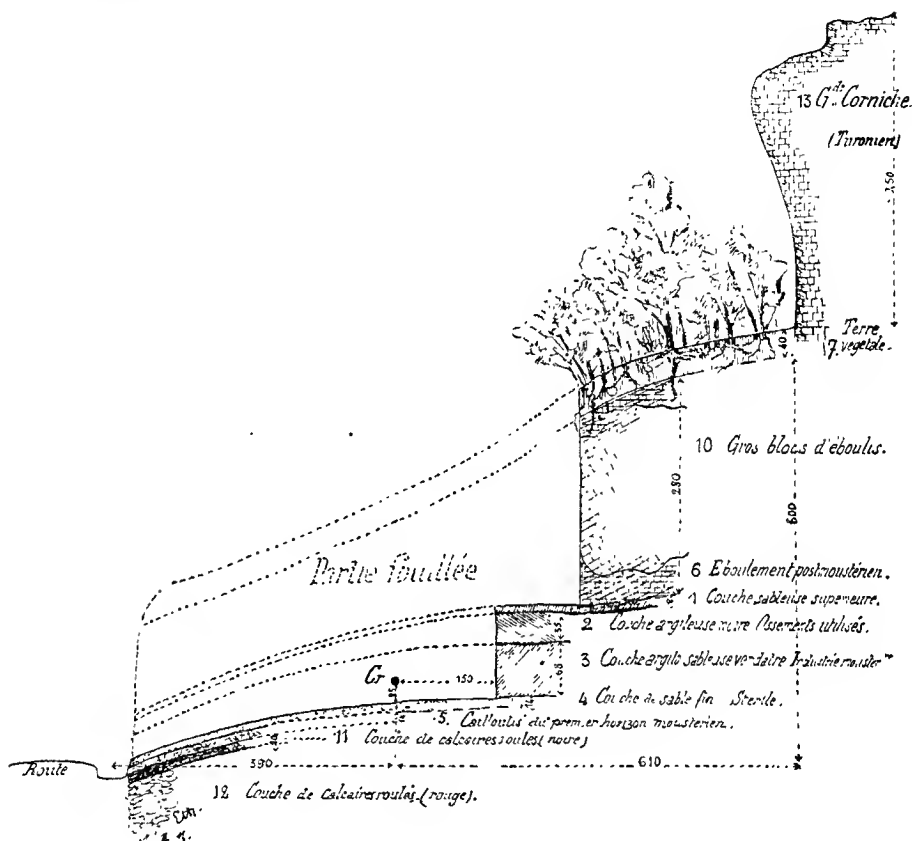 13 G.de Corniche.
(Turonien)
Terre
7. végétale.
40
10 Gros blocs d'éboulis.
280
600
Partie fouillée
6 Eboulement postmoustérien.
1 Couche sableuse supérieure.
2 Couche argileuse noire Ossements utilisés.
55
3 Couche argilo sableuse verdâtre Industrie mouster.ne
68
G
150
4 Couche de sable fin Stérile.
5. Cailloutis du premier horizon moustérien.
11 Couche de calcaires roulés (noire)
Route
590
610
12 Couche de calcaires roulés. (rouge).
Ech.